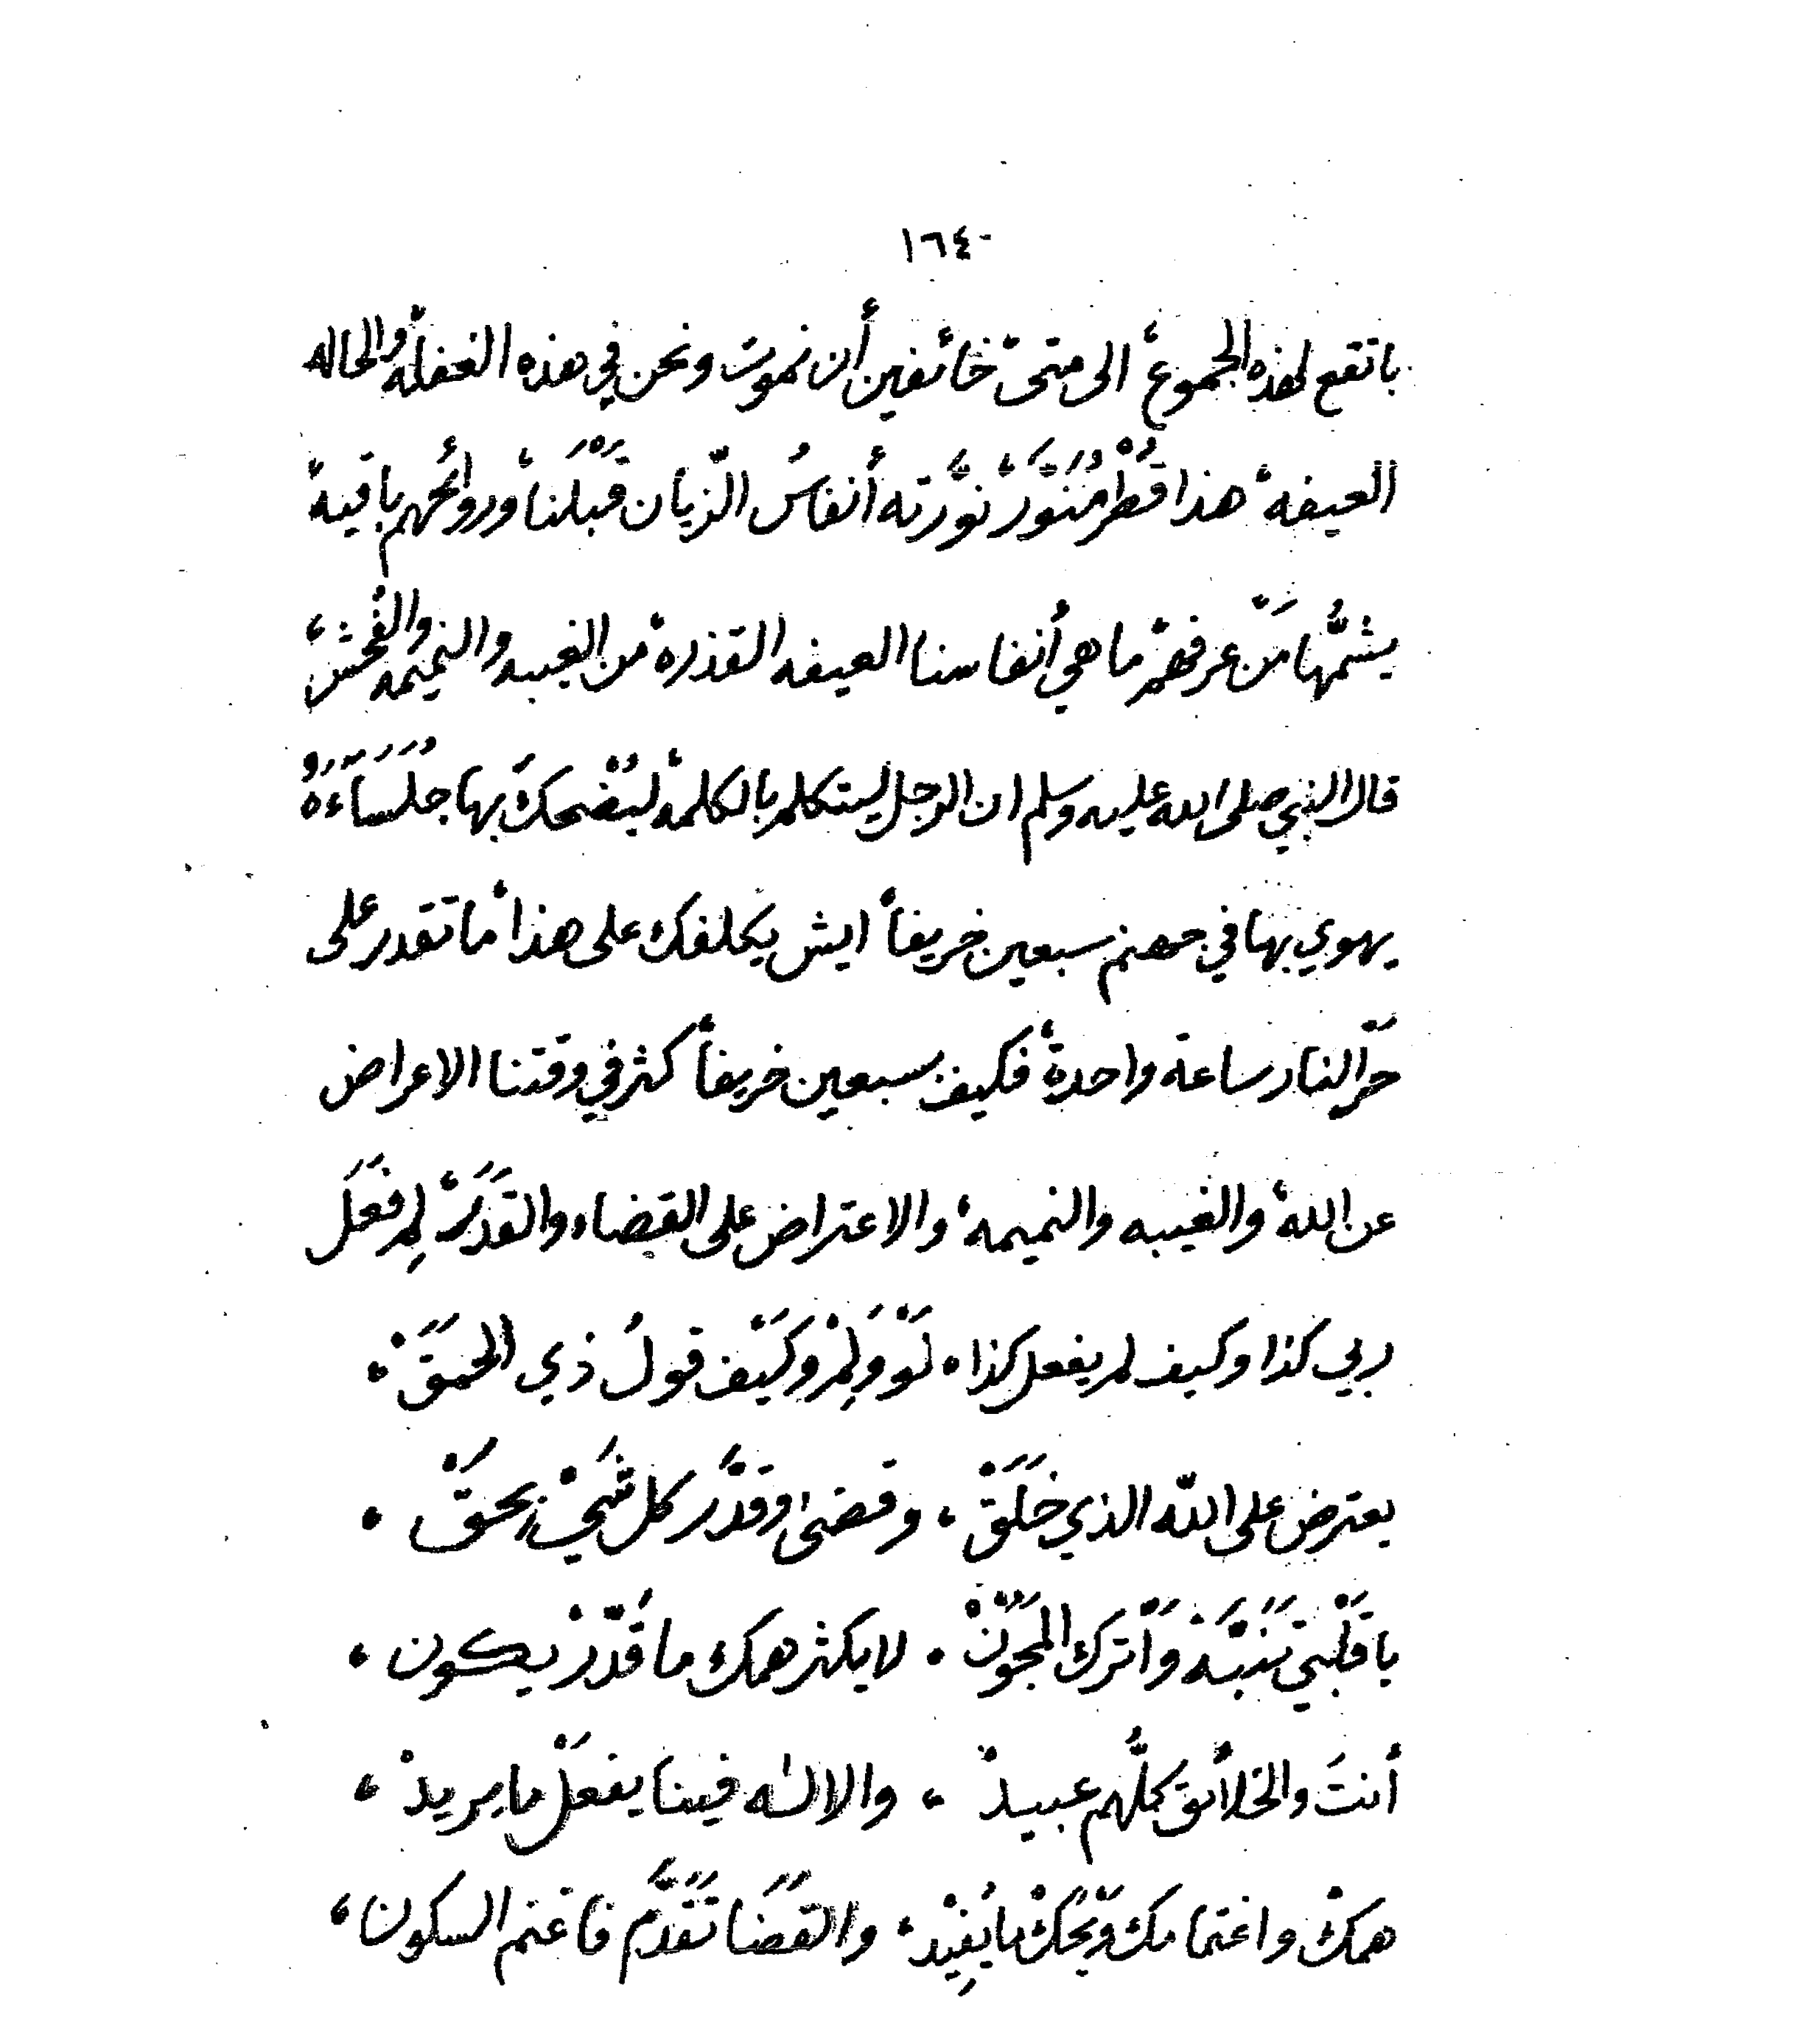 ١٦٤-
باتقع لهذه الجموع، الى متى خائفين أن نموت ونحن في هذه الغفلة والحاله
العيفه، هذا قُطْر مُنَوَّرْ، نوَّرته أنفاسُ الزّيان قَبْلَنا، وروائحهم باقية
يشمُّها مَن عرفهم، ما هي أنفاسنا العيفه القذره من الغيبه والنميمه والفُحش،
قال النبي صلى الله عليه وسلم ان الرجل ليتكلم بالكلمة ليُضْحكَ بها جُلَسَآءَهُ
يهوي بها في جهنم سبعين خريفاً، ايش يكلفك على هذا، ما تقدر على
حَرّ النار ساعة واحدة، فكيف سبعين خريفاً، كثر في وقتنا الاعراض
عن الله، والغيبه والنميمه، والاعتراض على القضاء والقَدَرْ، لِمَ فَعَلَ
ربي كذا وكيف لم يفعل كذا، لَوْ وَلِمْ وكَيْف قولُ ذي الحَمَقْ،
يعترض على الله الذي خَلَقْ، وقضى وقدَّر كل شَيْءٍ بِحَقْ،
يا قَلْبي تَنَبَّهْ وَاتْرك المَجُونْ، لا يكثر همك ما قُدّرْ يكون،
أنتَ والخلائق كلُّهم عبيدْ، والاله فينا يفعَلْ ما يريدْ،
همكْ واغتمامك وَيْحَكْ ما يُفِيْد، والقَضَا تَقَدَّم فاغنم السكون،